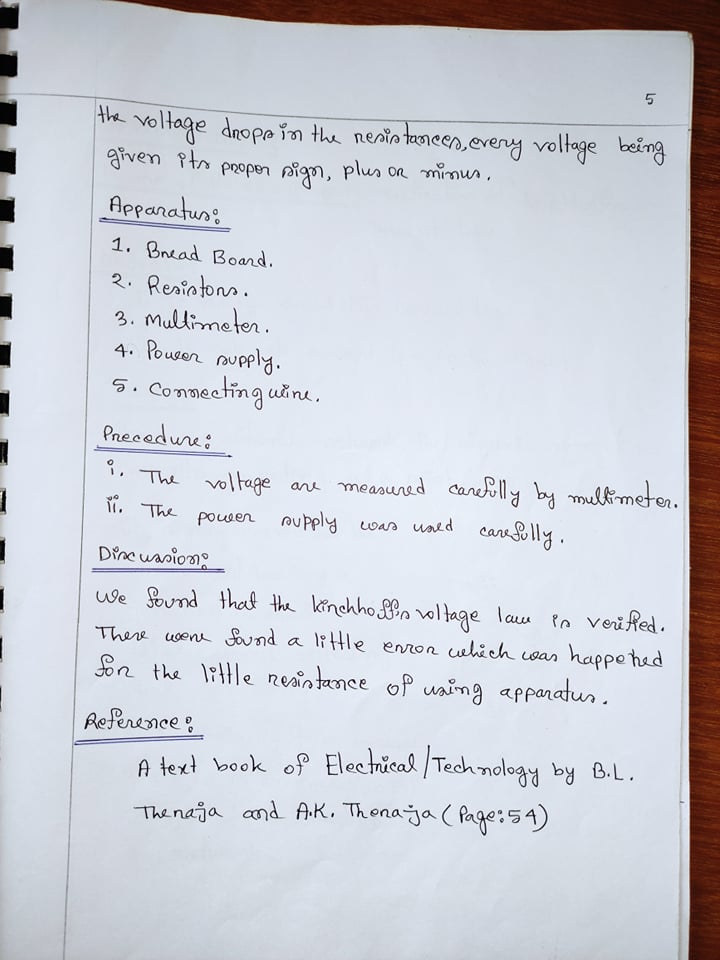 5
the voltage drops in the resistances, every voltage being
given its proper sign, plus or minus.
Apparatus:
1. Bread Board.
2. Resistors.
3. Multimeter.
4. Power supply.
5. Connecting wire.
Precedure:
i. The voltage are measured carefully by multimeter.
ii. The power supply was used carefully.
Discussion:
We found that the kirchhoff's voltage law is verified.
There were found a little error which was happened
for the little resistance of using apparatus.
Reference:
A text book of Electrical/Technology by B.L.
Thenaja and A.K. Thenaja (Page:54)